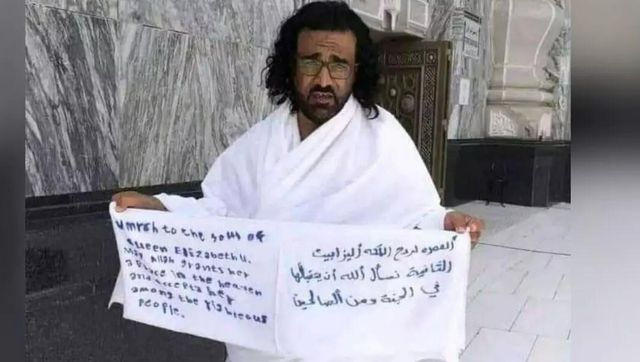 Umrah to the souls of
Queen Elizabeth II.
May Allah grants her
a place in the heaven
and accepts her
among the righteous
people.
العمره لروح الملكه أليزابيت
الثانية نسأل الله أن يتقبلها
في الجنة ومن الصالحين